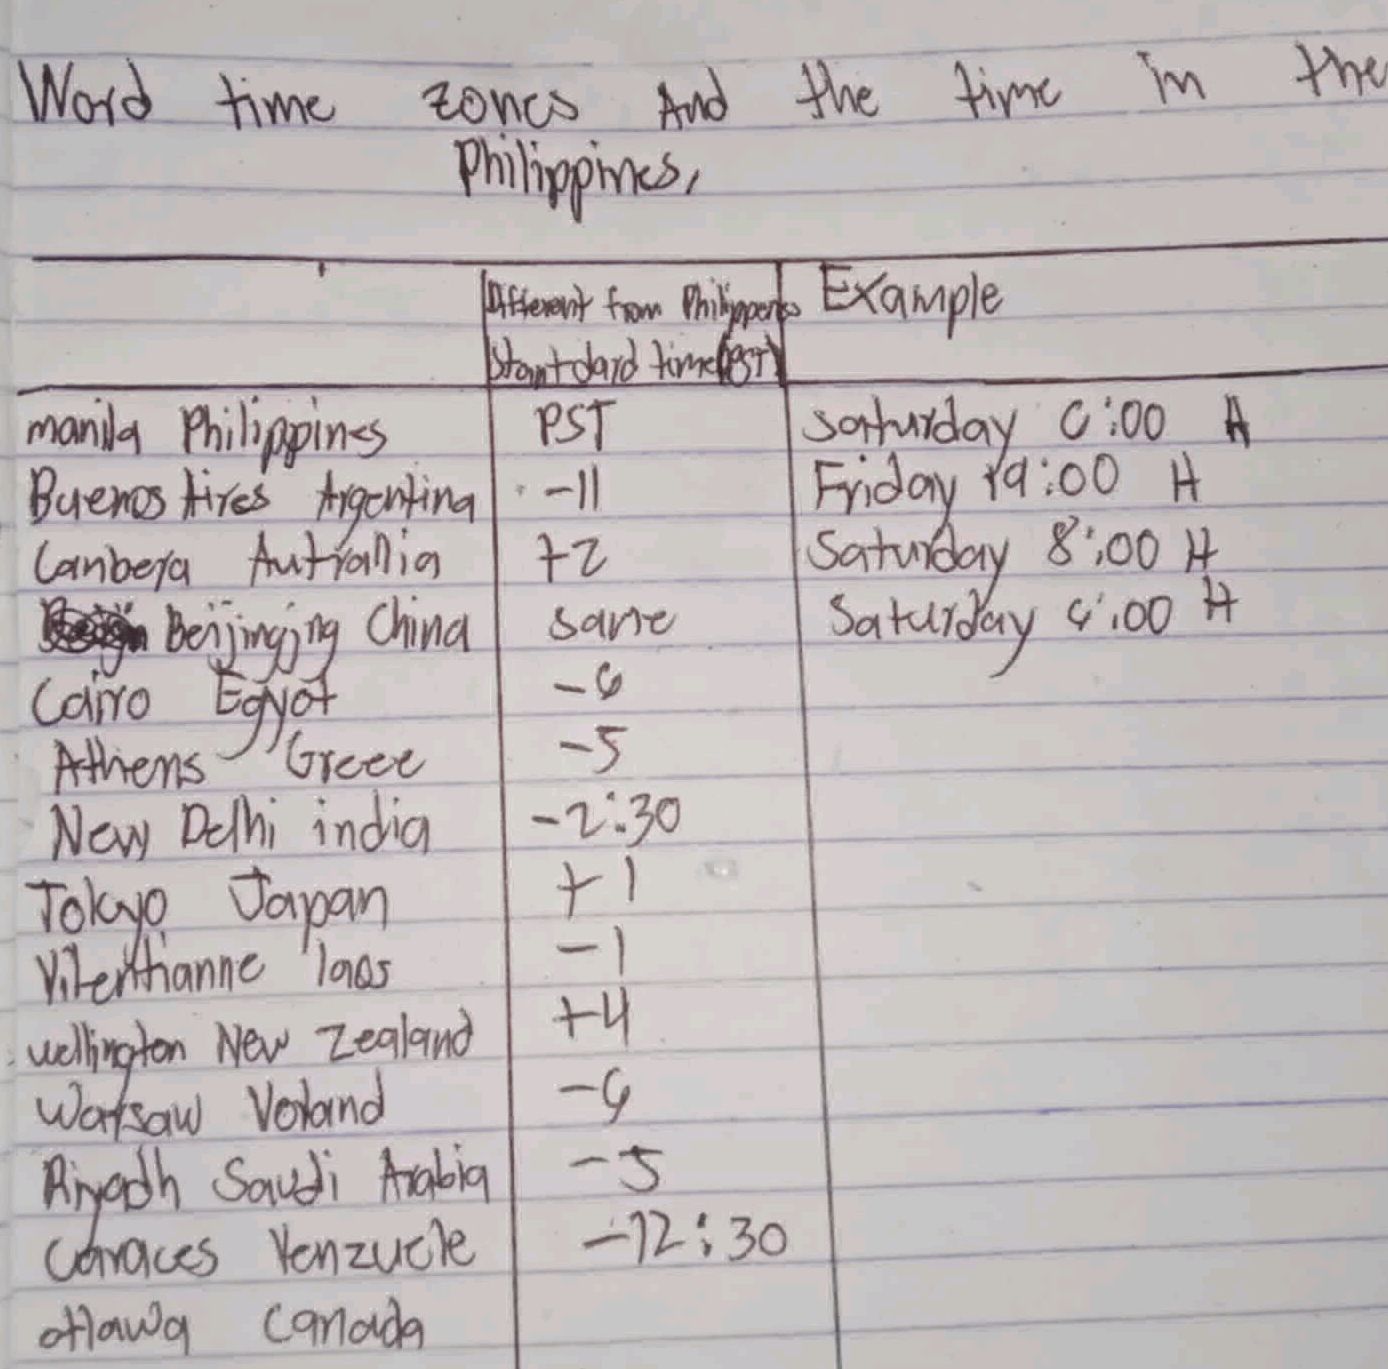 Word time zones And the time in the
Philippines,
Different from Philippens Example
Stantdard time (PST)
manila Philippines PST Saturday 6:00 H
Buenos Aires Argentina -11 Friday 19:00 H
Canbera Autrallia +2 Saturday 8:00 H
Beijingjng China same Saturday 6:00 H
Cairo Egyot -6
Athens Greee -5
New Delhi india -2:30
Tokyo Japan +1
Vitenthanne laos -1
wellington New Zealand +4
Warsaw Voland -6
Riyadh Saudi Arabia -5
Caraces Venzuele -12:30
ottawa Canada